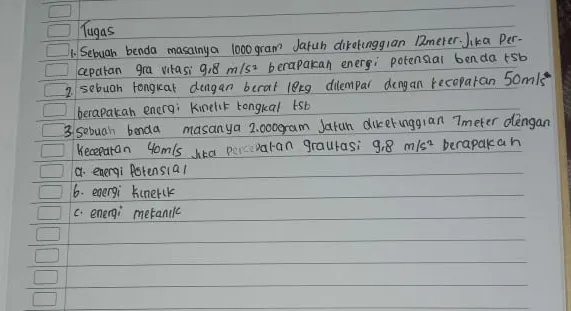 Tugas
1. Sebuah benda masalnya 1000 gram Jatuh diketinggian 12meter. Jika Per-
cepatan gra vitasi 9,8 m/s² berapakah energi potensial benda tsb
2. sebuah tongkat dengan berat 18kg dilempar dengan kecepatan 50m/s
berapakah energi kinetik tongkat tsb
3. Sebuah benda masanya 2.000gram Jatuh diketinggian 7meter dengan
kecepatan 40m/s Jika percepatan gravitasi 9,8 m/s² berapakah
a. energi Potensial
b. energi kinetik
c. energi mekanik